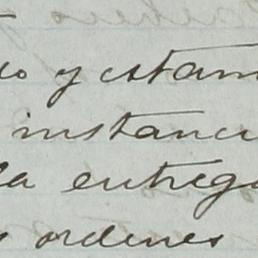 do y estam
instanci
la entrega
s ordenes